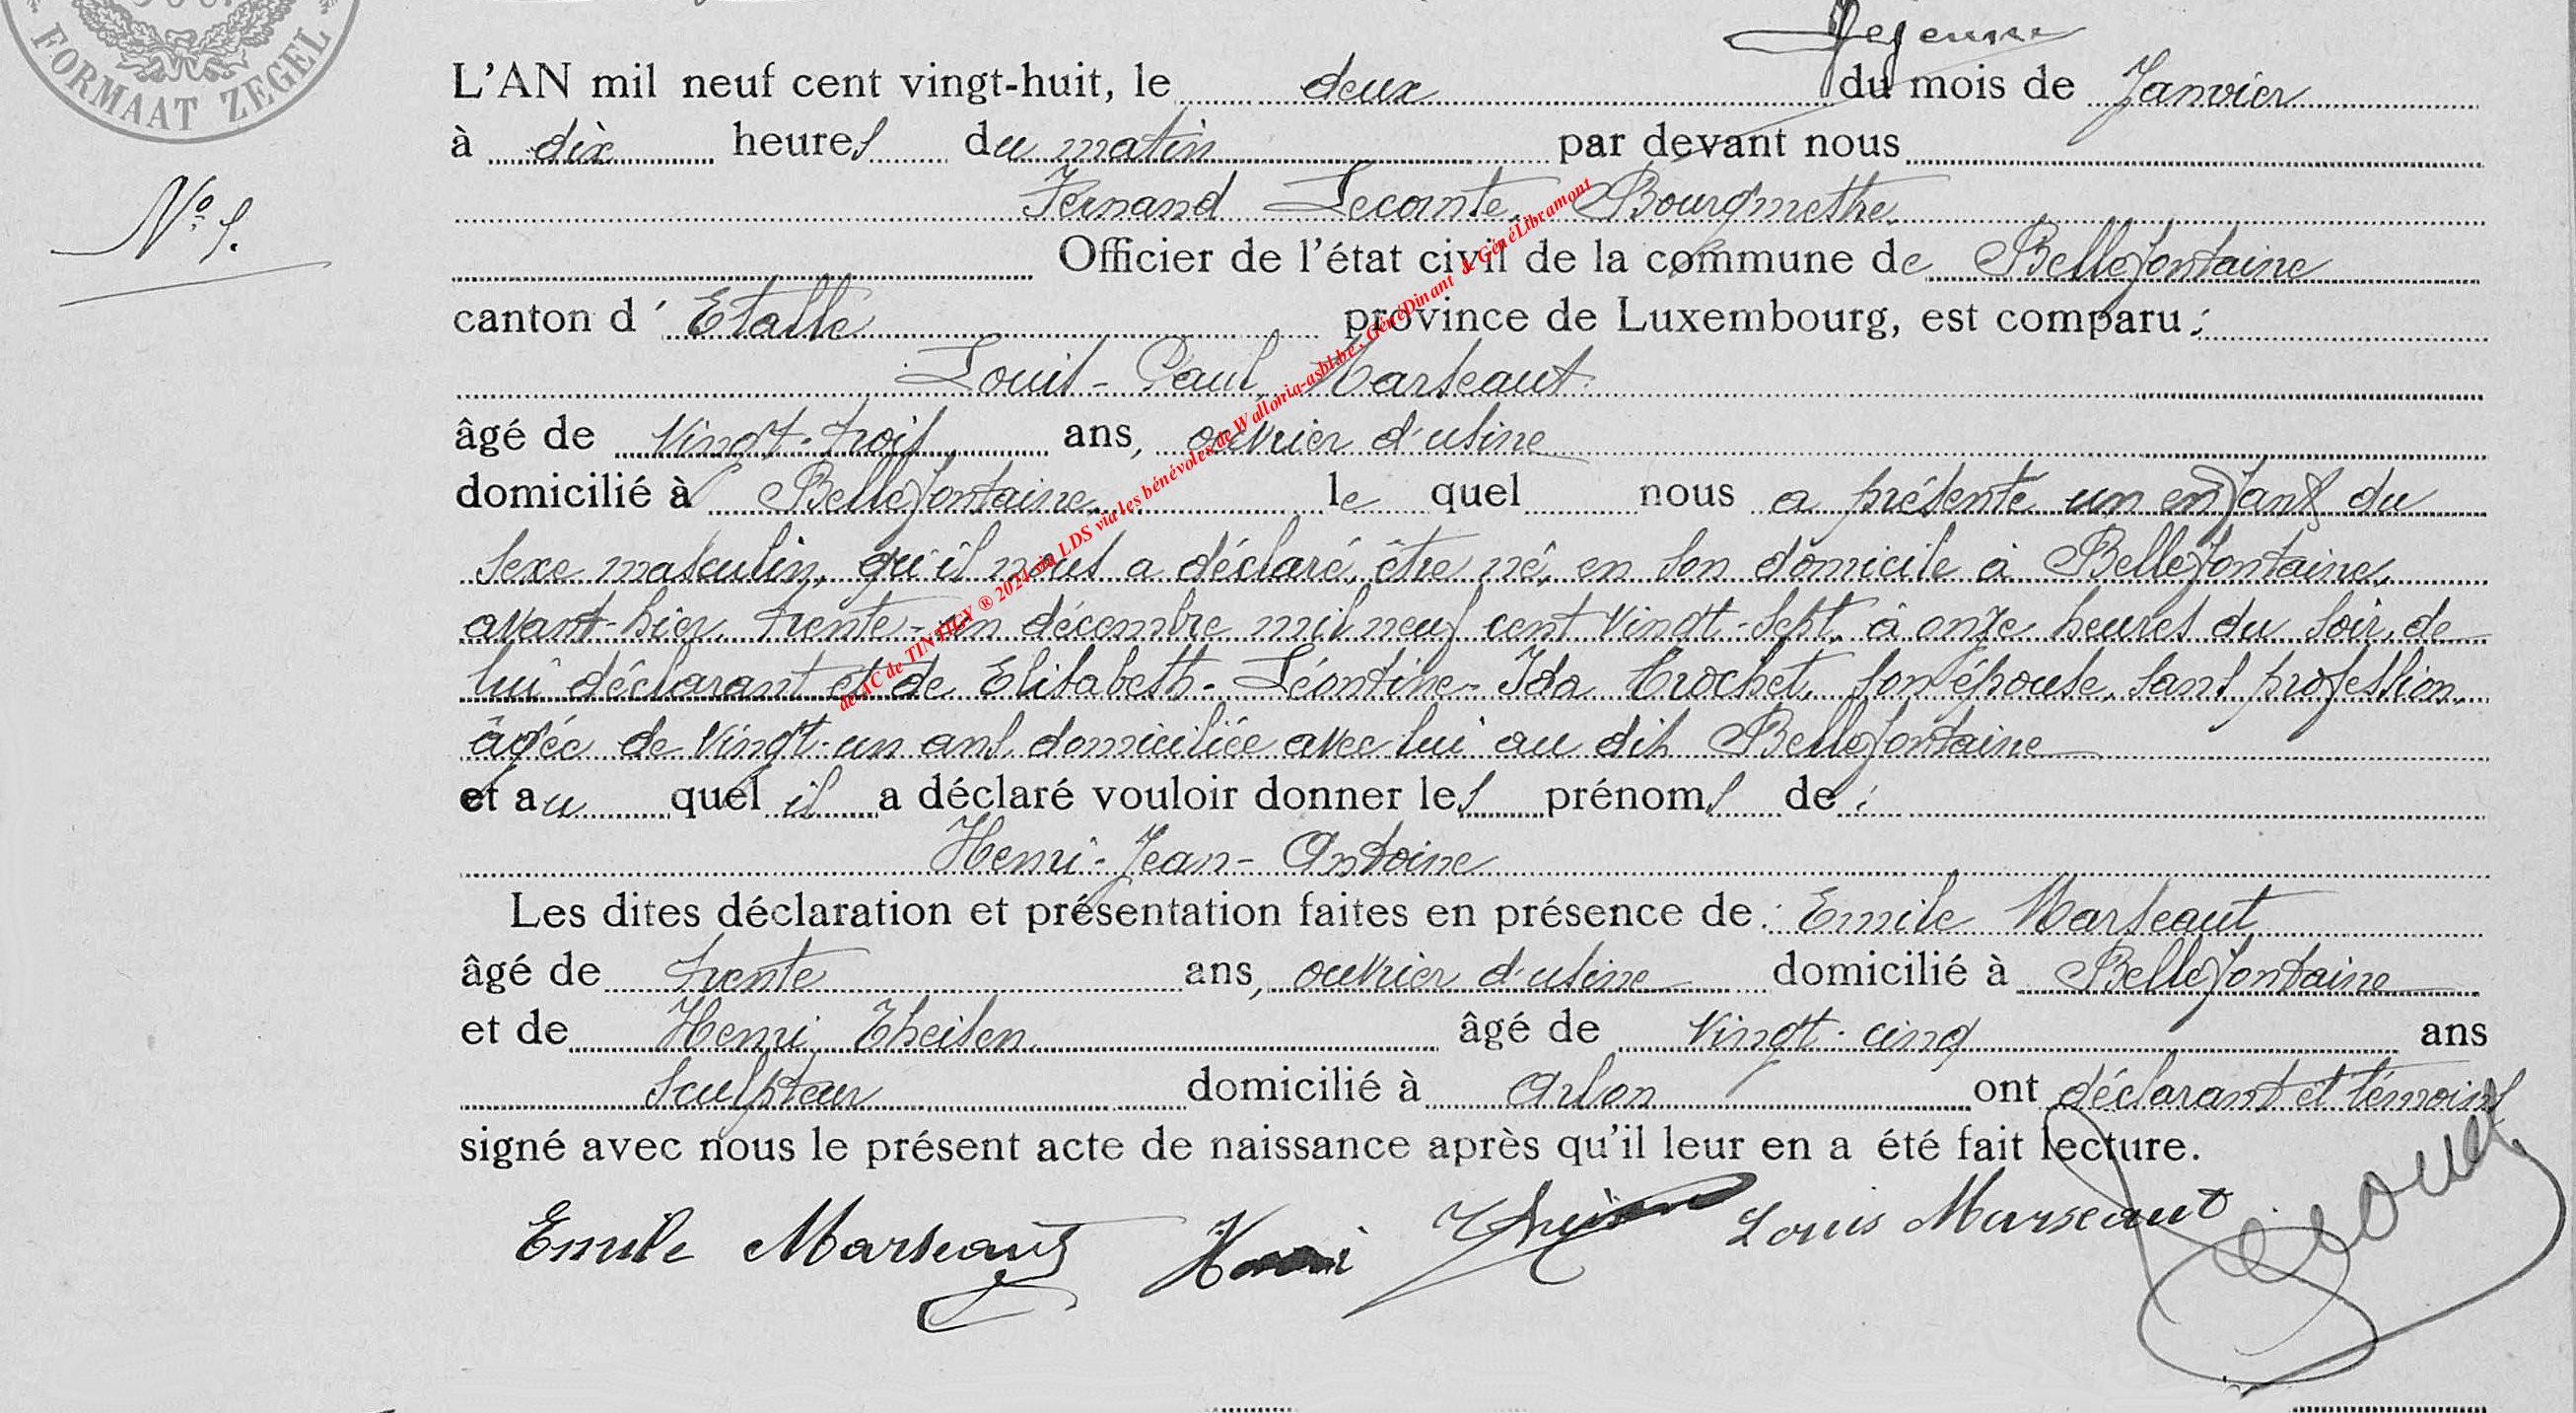 FORMAAT ZEGEL
Lejeune
L'AN mil neuf cent vingt-huit, le deux du mois de Janvier
à dix heures du matin par devant nous
Fernand Lecomte, Bourgmestre
Officier de l'état civil de la commune de Bellefontaine
canton d' Etalle province de Luxembourg, est comparu :
Louis-Paul Marseaut
âgé de vingt-trois ans, ouvrier d'usine
domicilié à Bellefontaine, le quel nous a présenté un enfant du
sexe masculin, qu'il nous a déclaré, être né, en son domicile à Bellefontaine,
avant-hier, trente-un décembre mil neuf cent vingt-sept, à onze heures du soir, de
lui déclarant et de Elisabeth-Léontine-Ida Crochet, son épouse, sans profession,
âgée de vingt-un ans, domiciliée avec lui au dit Bellefontaine
et au quel il a déclaré vouloir donner les prénoms de :
Henri-Jean-Antoine
Les dites déclaration et présentation faites en présence de : Emile Marseaut
âgé de trente ans, ouvrier d'usine domicilié à Bellefontaine
et de Henri Theisen âgé de vingt-cinq ans
sculpteur domicilié à Arlon ont déclarant et témoins
signé avec nous le présent acte de naissance après qu'il leur en a été fait lecture.
Emile Marseaut Henri Theisen Louis Marseaut
N° 1.
de AC de TINTIGY ® 2021 via LDS via les bénévoles de Wallonia-asbl.be, GénéDinant & GénéLibramont